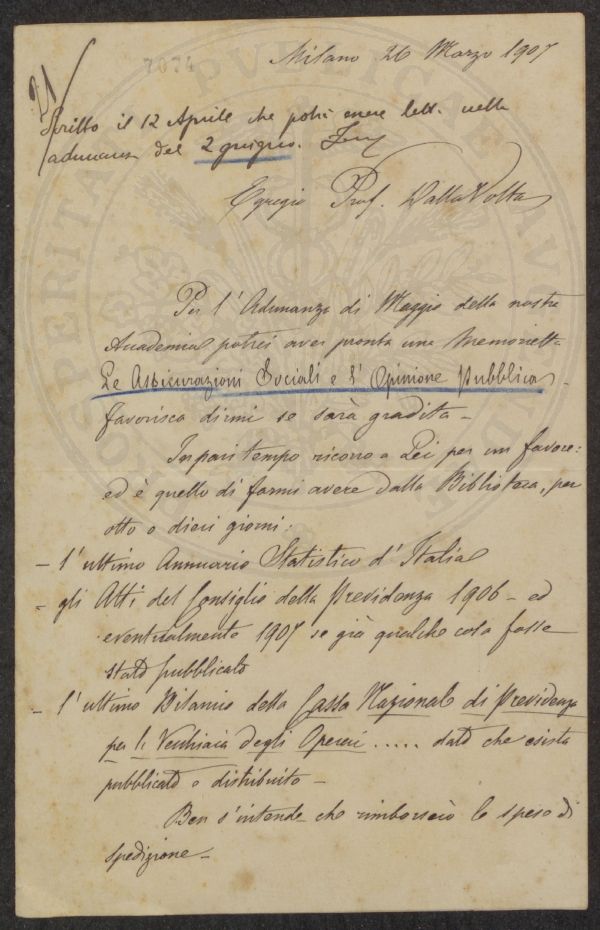 7074
Milano 26 Marzo 1907
21
Scritto il 12 Aprile che potrà essere lett. nella
adunanza del 2 giugno.
Egregio Prof. Dalla Volta
Per l'Adunanza di Maggio della nostra
Accademia potrei aver pronta una Memorietta
Le Assicurazioni Sociali e l'Opinione Pubblica -
favorisca dirmi se sarà gradita -
In pari tempo ricorro a Lei per un favore:
ed è quello di farmi avere dalla Biblioteca, per
otto o dieci giorni:
- l'ultimo Annuario Statistico d'Italia
- gli Atti del Consiglio della Previdenza 1906 - ed
eventualmente 1907 se già qualche cosa fosse
stato pubblicato
- l'ultimo Bilancio della Cassa Nazionale di Previdenza
per la Vecchiaia degli Operai ..... dato che esista
pubblicato o distribuito -
Ben s'intende che rimborserò le spese di
spedizione -